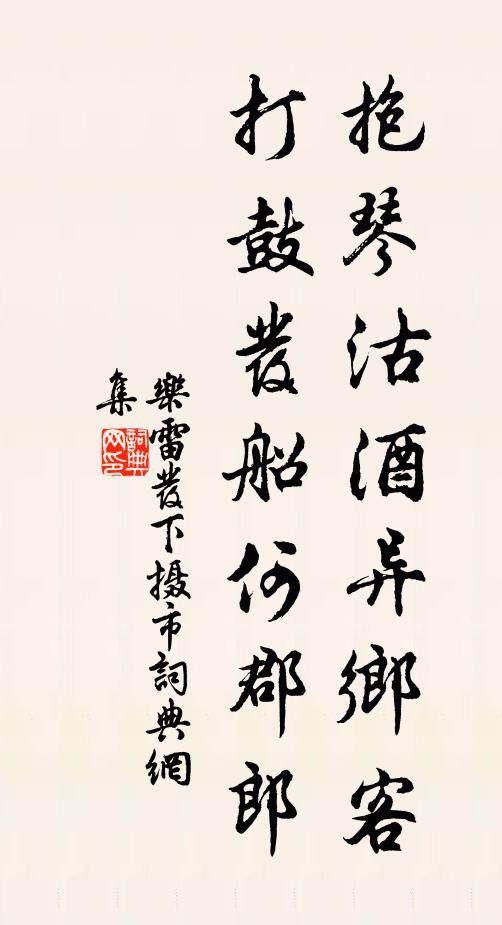 抱琴沽酒异鄉客
打鼓發船何郡郎
樂雷發下摄市詞典網
集
詞典
网印